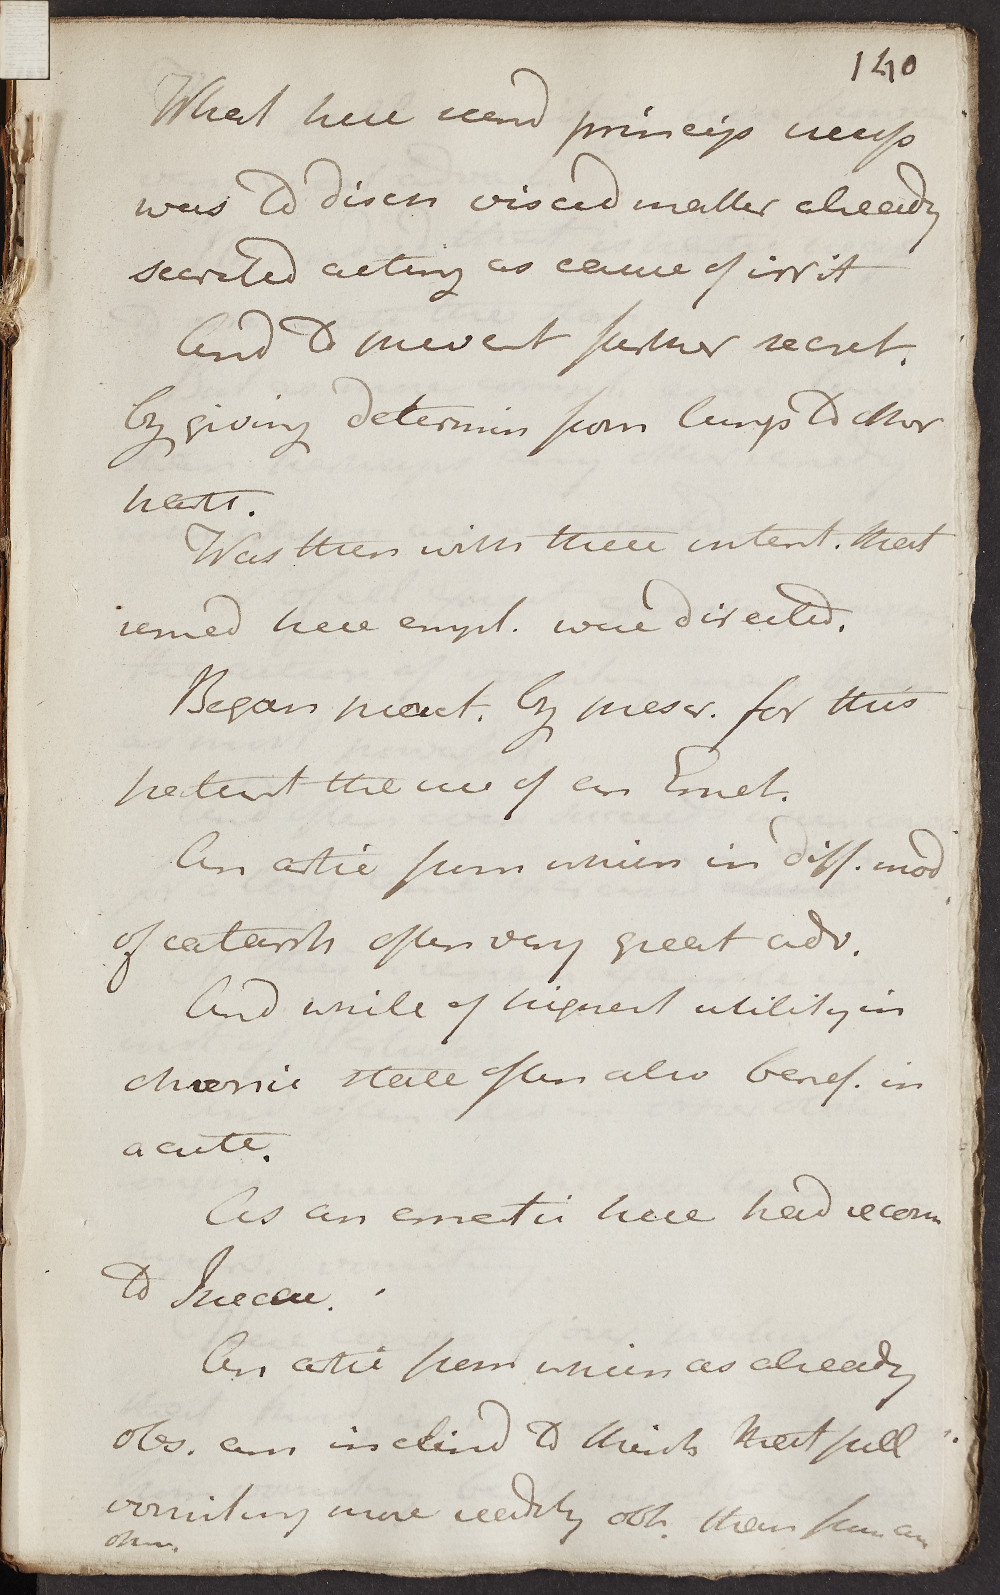 140
What here seemd princip necess
was to discu viscid matter already
secreted acting as cause of irrit
And to prevent further secret.
by giving determin from lungs to other
parts.
Was then with these intent. that
remed here empl. were directed.
Began pract. by prescr. for this
patient the use of an Emet.
An artic from which in diff. mod
of catarrh often very great adv.
And while of highest utility in
chronic state often also benef. in
acute.
As an emetic here had recour
to Ipecac.
An artic from which as already
obs. am inclind to think that full
vomiting more readily obt. than from an
other.